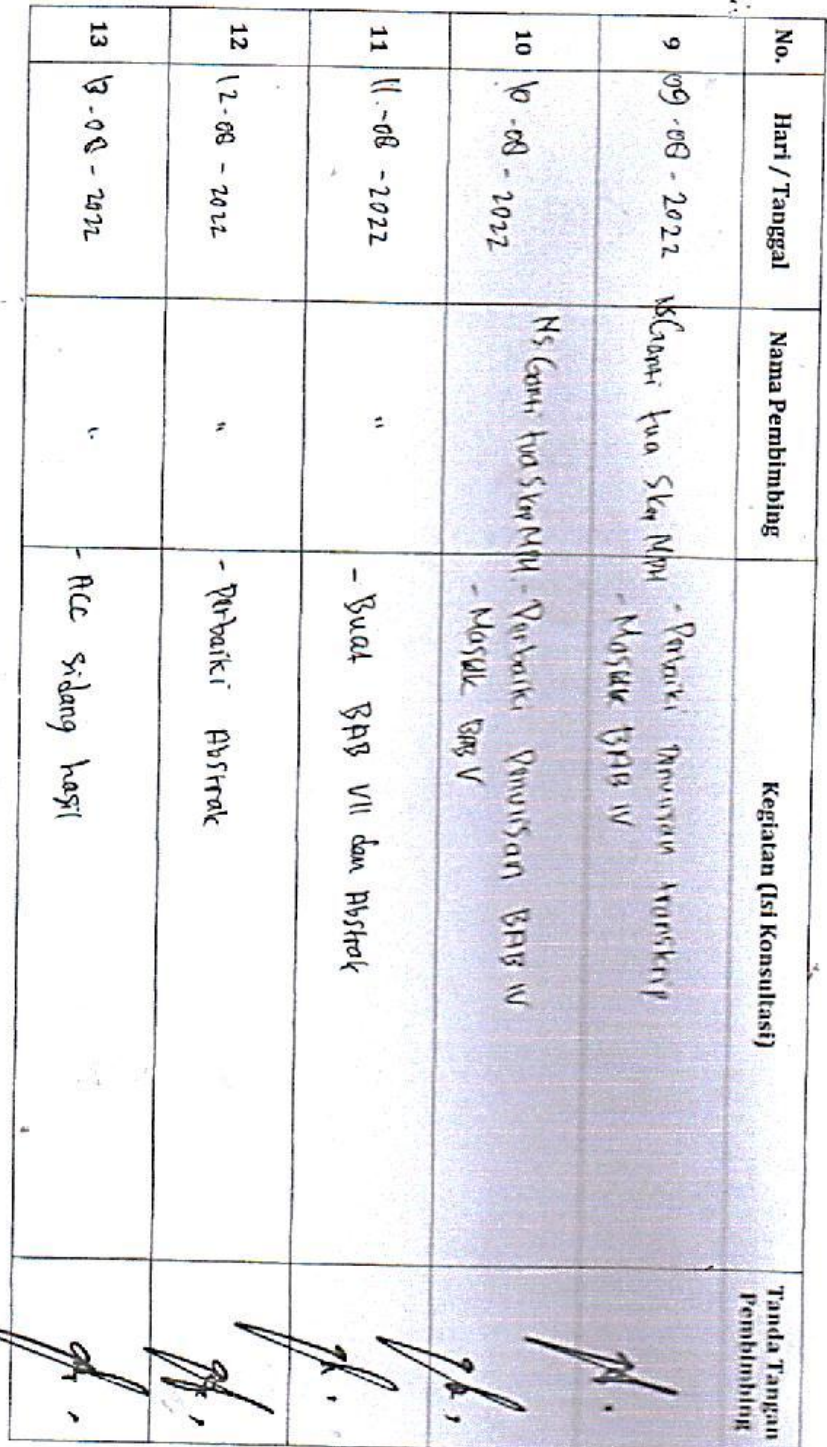 No. Hari / Tanggal Nama Pembimbing Kegiatan (Isi Konsultasi) Tanda Tangan
Pembimbing
9 09-08-2022 Ns. Ganti tua Skep MPH - Perbaiki Penulisan transkrip
- Masuk BAB IV
10 10-08-2022 Ns. Ganti tua Skep MPH - Perbaiki Penulisan BAB IV
- Masuk BAB V
11 11-08-2022 " - Buat BAB VII dan Abstrak
12 12-08-2022 " - Perbaiki Abstrak
13 13-08-2022 " - ACC sidang hasil